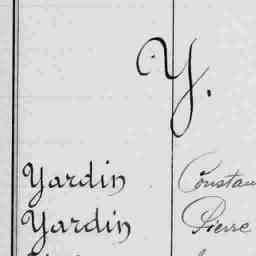 Y.
Yardin Constan
Yardin Pierre